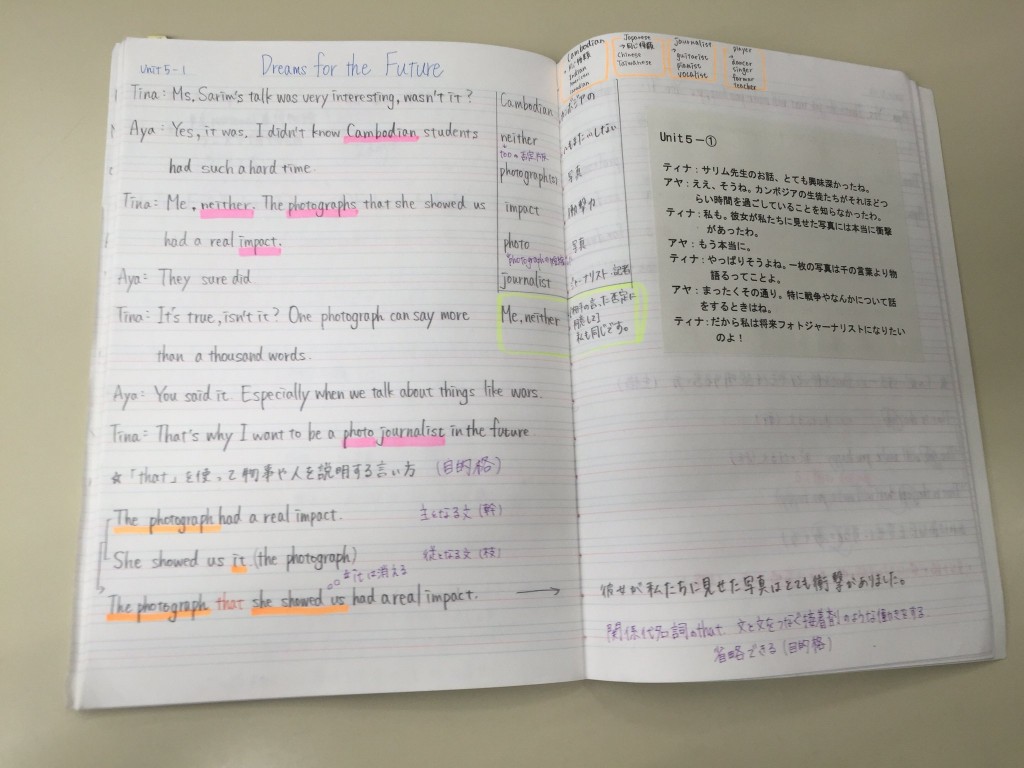 Unit 5-1 Dreams for the Future
Tina: Ms. Sarim's talk was very interesting, wasn't it?
Aya: Yes, it was. I didn't know Cambodian students
had such a hard time.
Tina: Me, neither. The photographs that she showed us
had a real impact.
Aya: They sure did
Tina: It's true, isn't it? One photograph can say more
than a thousand words.
Aya: You said it. Especially when we talk about things like wars.
Tina: That's why I want to be a photo journalist in the future
★「that」を使って物事や人を説明する言い方 (目的格)
The photograph had a real impact. 主となる文(幹)
She showed us it. (the photograph) 従となる文(枝)
itは消える
The photograph that she showed us had a real impact. →
Cambodian
neither
tooの否定形
photograph(s)
impact
photo
journalist
Me, neither
写真
衝撃力
写真
ジャーナリスト・記者
私も同じです。
Cambodian
Indian
Japanese
→同じ種類
Chinese
Taiwanese
journalist
guitarist
pianist
vocalist
player
dancer
singer
farmer
teacher
Unit5－①
ティナ：サリム先生のお話、とても興味深かったね。
アヤ：ええ、そうね。カンボジアの生徒たちがそれほどつ
らい時間を過ごしていることを知らなかったわ。
ティナ：私も。彼女が私たちに見せた写真には本当に衝撃
があったわ。
アヤ：もう本当に。
ティナ：やっぱりそうよね。一枚の写真は千の言葉より物
語るってことよ。
アヤ：まったくその通り。特に戦争やなんかについて話
をするときはね。
ティナ：だから私は将来フォトジャーナリストになりたい
のよ！
彼女が私たちに見せた写真はとても衝撃がありました。
関係代名詞のthat 文と文をつなぐ接着剤のような働きをする
省略できる(目的格)